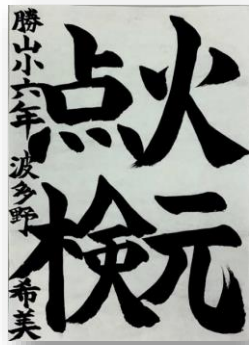 火元
点検
勝山小六年 波多野 希美